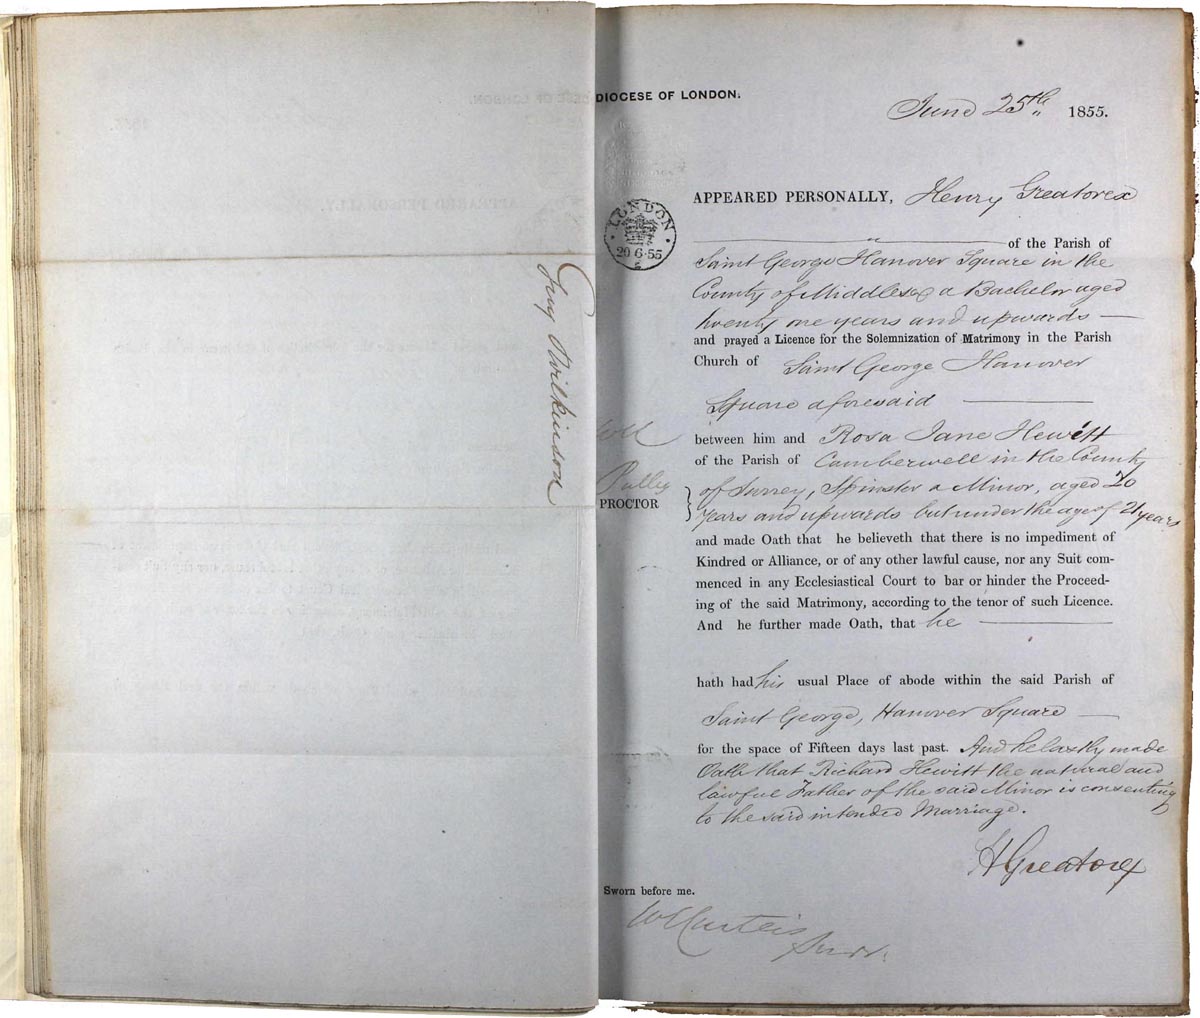 DIOCESE OF LONDON.
June 25th 1855.
LONDON
20·6·55
APPEARED PERSONALLY, Henry Greatorex
of the Parish of
Saint George Hanover Square in the
County of Middlesex a Bachelor aged
twenty one years and upwards —
and prayed a Licence for the Solemnization of Matrimony in the Parish
Church of Saint George Hanover
Square aforesaid —
between him and Rosa Jane Hewitt
of the Parish of Camberwell in the County
of Surrey, Spinster a Minor, aged 20
years and upwards but under the age of 21 years
PROCTOR
and made Oath that he believeth that there is no impediment of
Kindred or Alliance, or of any other lawful cause, nor any Suit com-
menced in any Ecclesiastical Court to bar or hinder the Proceed-
ing of the said Matrimony, according to the tenor of such Licence.
And he further made Oath, that he —
hath had his usual Place of abode within the said Parish of
Saint George, Hanover Square —
for the space of Fifteen days last past. And he lastly made
Oath that Richard Hewitt the natural and
lawful Father of the said Minor is consenting
to the said intended Marriage.
H Greatorex
Sworn before me.
Surr.
Wilkinson